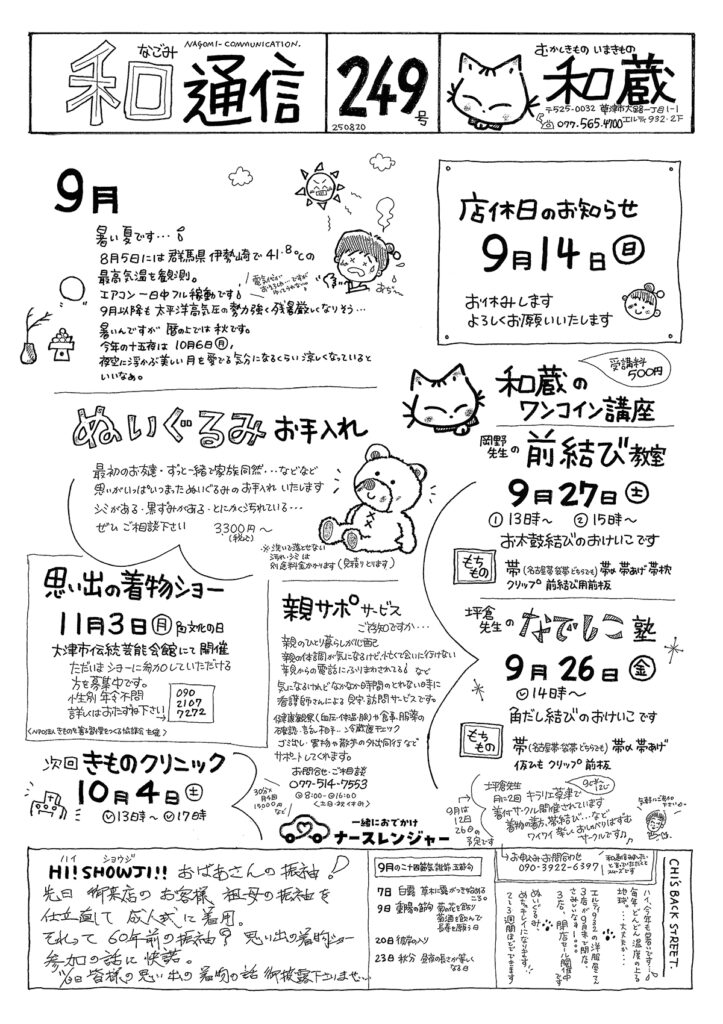 なごみ
NAGOMI-COMMUNICATION.
和通信
249号
250820
むかしきもの いまきもの
和蔵
〒525-0032 草津市大路一丁目1-1
エルティ932・2F
077・565・4700
9月
暑い夏です…
8月5日には 群馬県 伊勢崎で 41.8℃の
最高気温を観測。
エアコン一日中フル稼動です
9月以降も 太平洋高気圧の勢力強く残暑厳しくなりそう…
暑いんですが 暦の上では 秋です。
今年の十五夜は 10月6日(月)、
夜空に浮かぶ美しい月を愛でる気分になるくらい 涼しくなっていると
いいなぁ。
店休日のお知らせ
9月14日(日)
お休みします
よろしくお願いいたします
受講料
500円
和蔵の
ワンコイン講座
岡野先生の 前結び教室
9月27日(土)
①13時〜 ②15時〜
お太鼓結びのおけいこです
もちもの
帯(名古屋帯・袋帯どちらでも) 帯〆 帯あげ 帯枕
クリップ 前結び用前板
坪倉先生の なでしこ塾
9月26日(金)
14時〜
角だし結びのおけいこです
もちもの
帯(名古屋帯・袋帯どちらでも) 帯〆 帯あげ
仮ひも クリップ 前板
坪倉先生
月に2回 キラリエ草津で
着付サークル開催されています
着物の着方、帯結び…など
ワイワイ 楽しくおしゃべりはずむ
サークルです♪
9月は
12日
26日の
予定です
ぬいぐるみ お手入れ
最初のお友達・ずっと一緒で家族同然…などなど
思いがいっぱいつまった ぬいぐるみのお手入れ いたします
シミがある・黒ずみがある・とにかく汚れている…
ぜひ ご相談下さい 3,300円〜
(税込)
※洗いで落とせない
汚れ・シミは
別途料金かかります(見積りとります)
思い出の着物ショー
11月3日(月)文化の日
大津市伝統芸能会館にて 開催
ただいま ショーに参加していただける
方を募集中です。
性別 年令 不問
詳しくは おたずね下さい→
090
2107
7272
次回 きものクリニック
10月4日(土)
13時〜 17時
親サポ サービス
ご存知ですか…
親のひとり暮らしが心配
親の体調が気になるけど、忙しくて会いに行けない
親からの電話にふりまわされてる など
気になるけれど なかなか時間のとれない時に
看護師さんによる 見守り訪問サービスです。
健康観察(血圧・体温・脈)や食事・服薬の
確認・冷蔵庫チェック
ゴミ出し・買物や散歩の外出同行など
サポートしてくれます。
お問合せ・ご相談
077-514-7553
8:00〜16:00
(土・日・祝はやすみ)
一緒におでかけ
ナースレンジャー
ハイ ショウジ
HI! SHOWJI!! おばあさんの振袖!
先日 御来店のお客様 祖母の振袖を
仕立直して 成人式に着用。
それって 60年前の振袖? 思い出の着物ショー
参加の話に 快諾。
皆様の思い出の着物の話 御披露下さいませ
9月の二十四節気 雑節 五節句
7日 白露 草木に露がつき始める
ころ
9日 重陽の節句 菊の花を飾り
菊酒を飲んで
長寿を願う日
20日 彼岸の入り
23日 秋分 昼夜の長さが等しく
なる日
お申込み・お問合わせ
090-3922-6397
CHI'S BACK STREET
ハイ、今年も暑いです…!
毎年、どんどん温度の上る
地球。…大丈夫か…
エルティ932の洋服屋さん
3店が9月末で閉店。
さみしいなぁ…
3店、閉店セール開催中
です
ぬいぐるみ
めっちゃキレイになります!!
2〜3週間ほどでできます